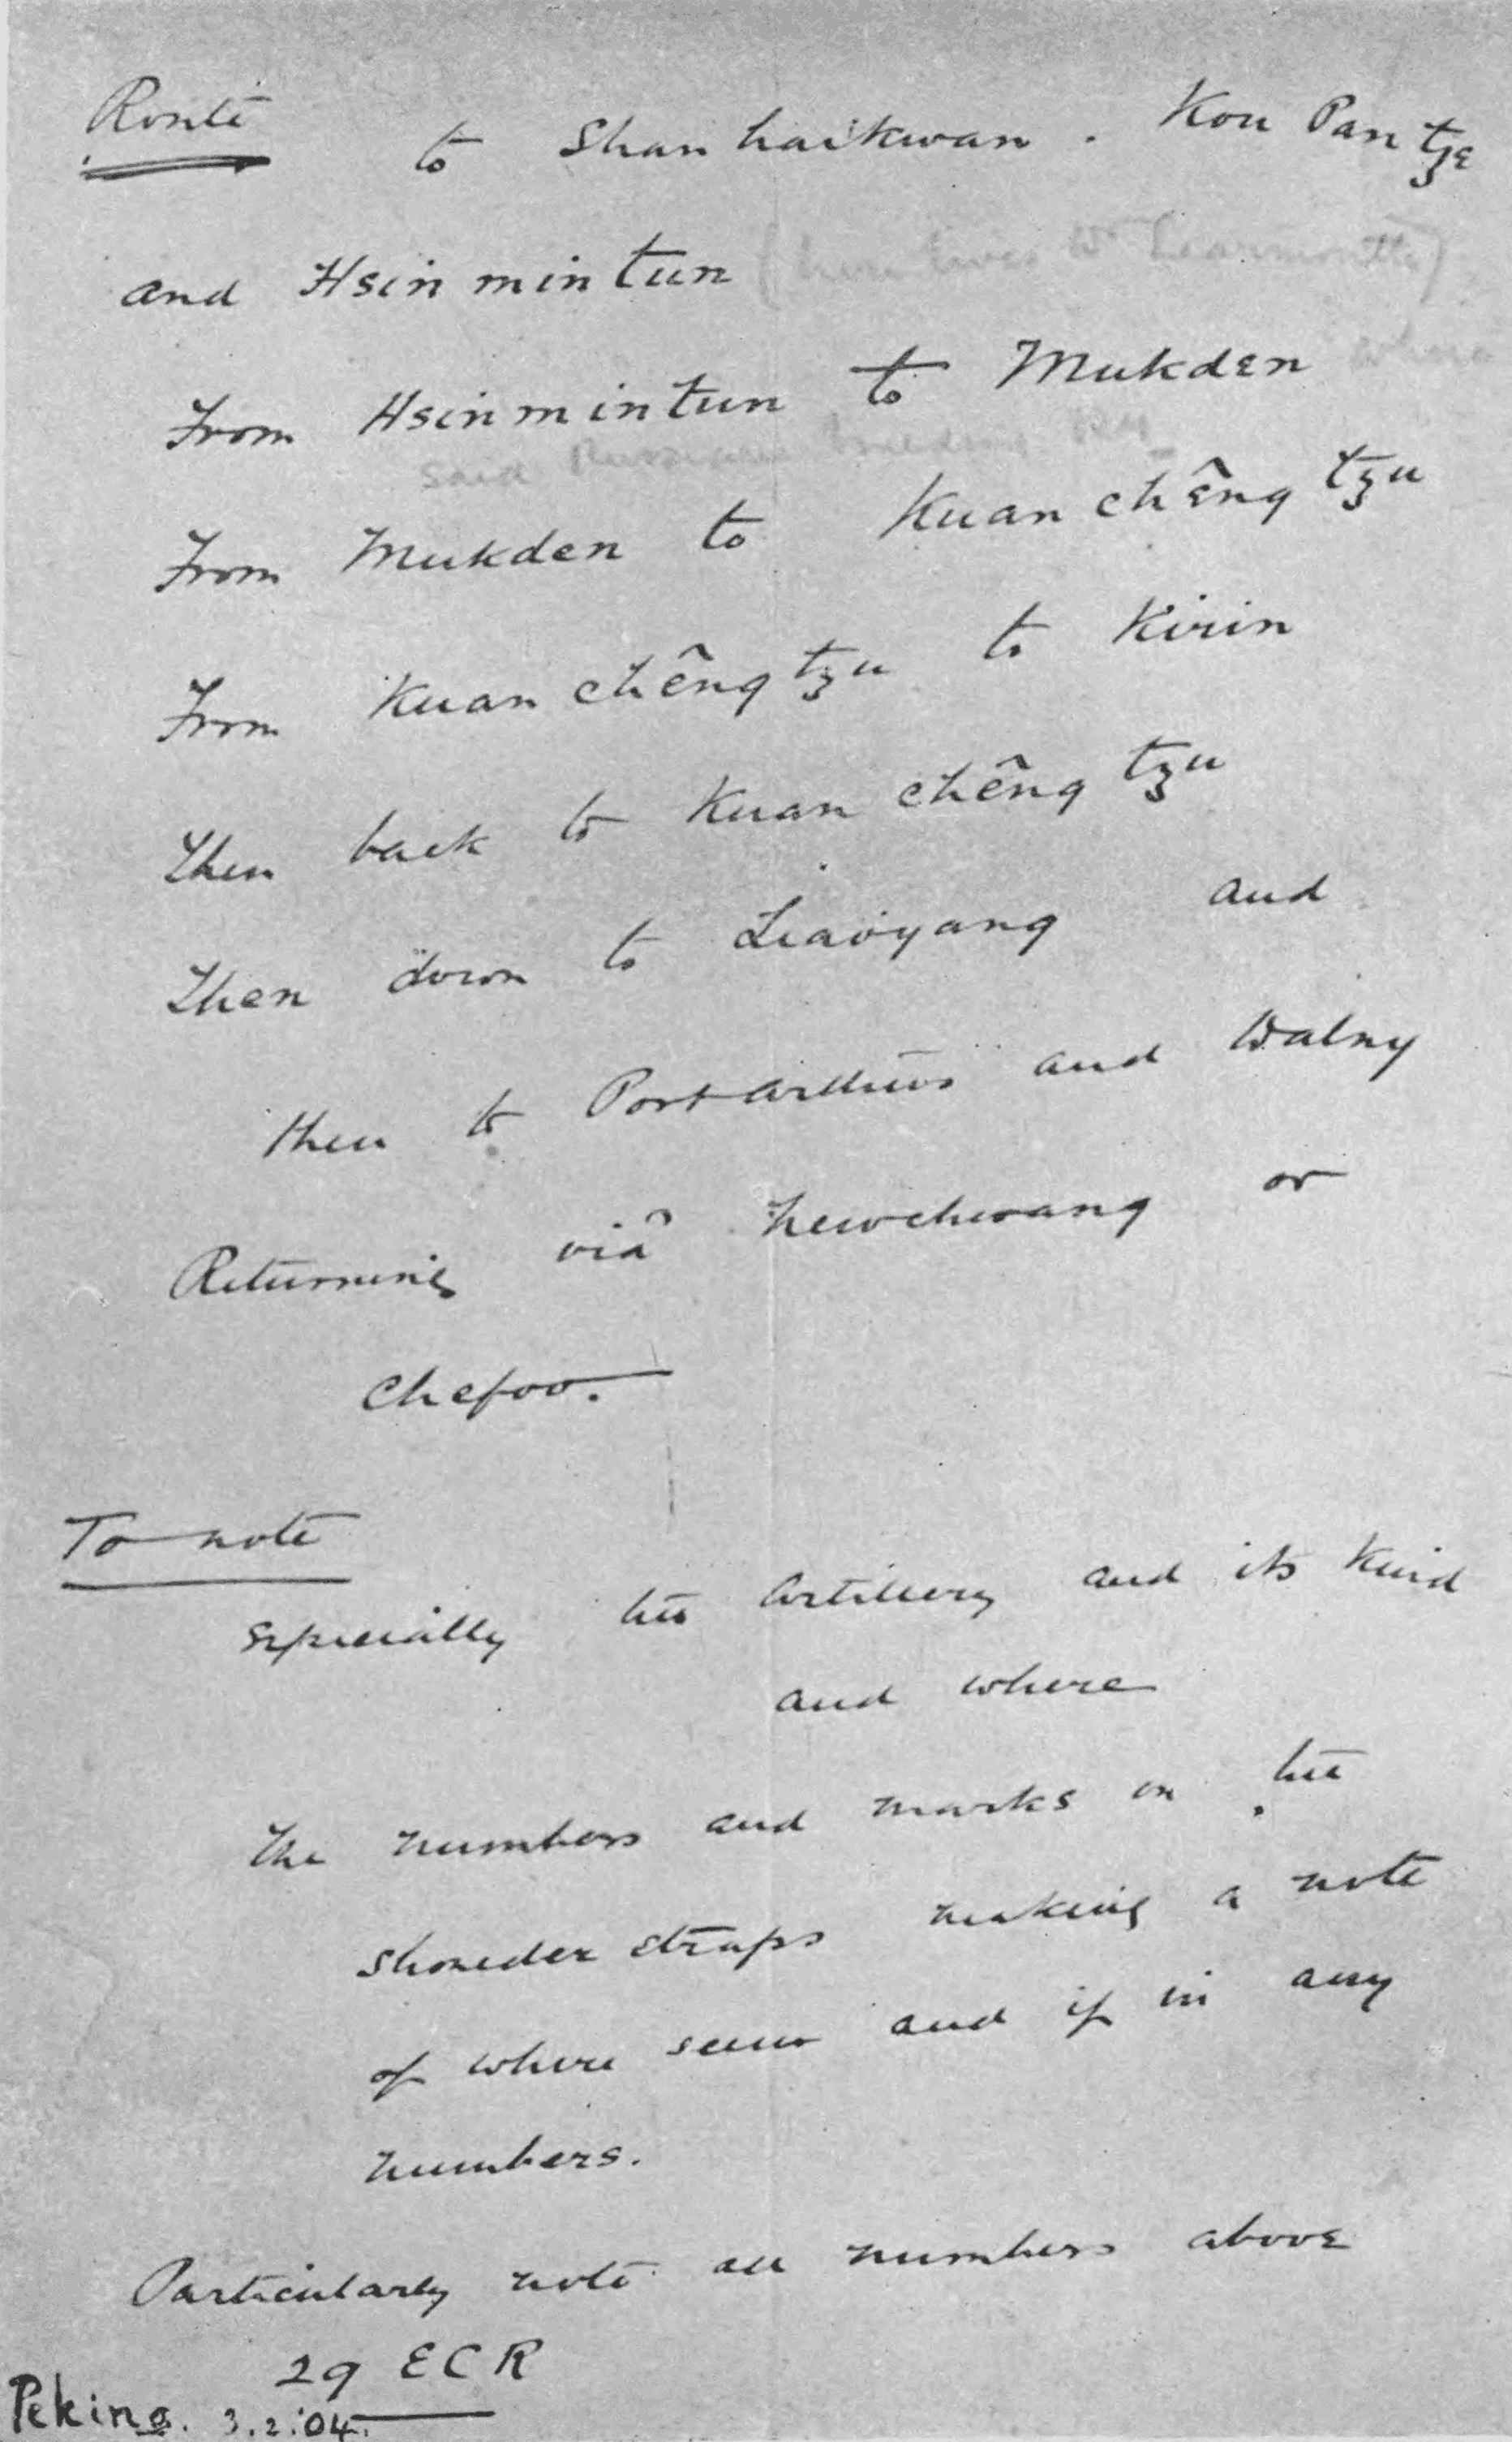 Route to Shan haikwan. Kou Pan tze
and Hsin min tun (here lives Dr Learmonth)
From Hsin min tun to Mukden where
said Russians building Rly
From Mukden to Kuan chêng tzu
From Kuan chêng tzu to Kirin
Then back to Kuan chêng tzu
Then down to Liaoyang and
then to Port Arthur and Dalny
Returning viâ Newchwang or
Chefoo.
To note
Especially the Artillery and its kind
and where
The numbers and marks on the
shoulder straps making a note
of where seen and if in any
numbers.
Particularly note all numbers above
29 ECR
Peking. 3.2.04.